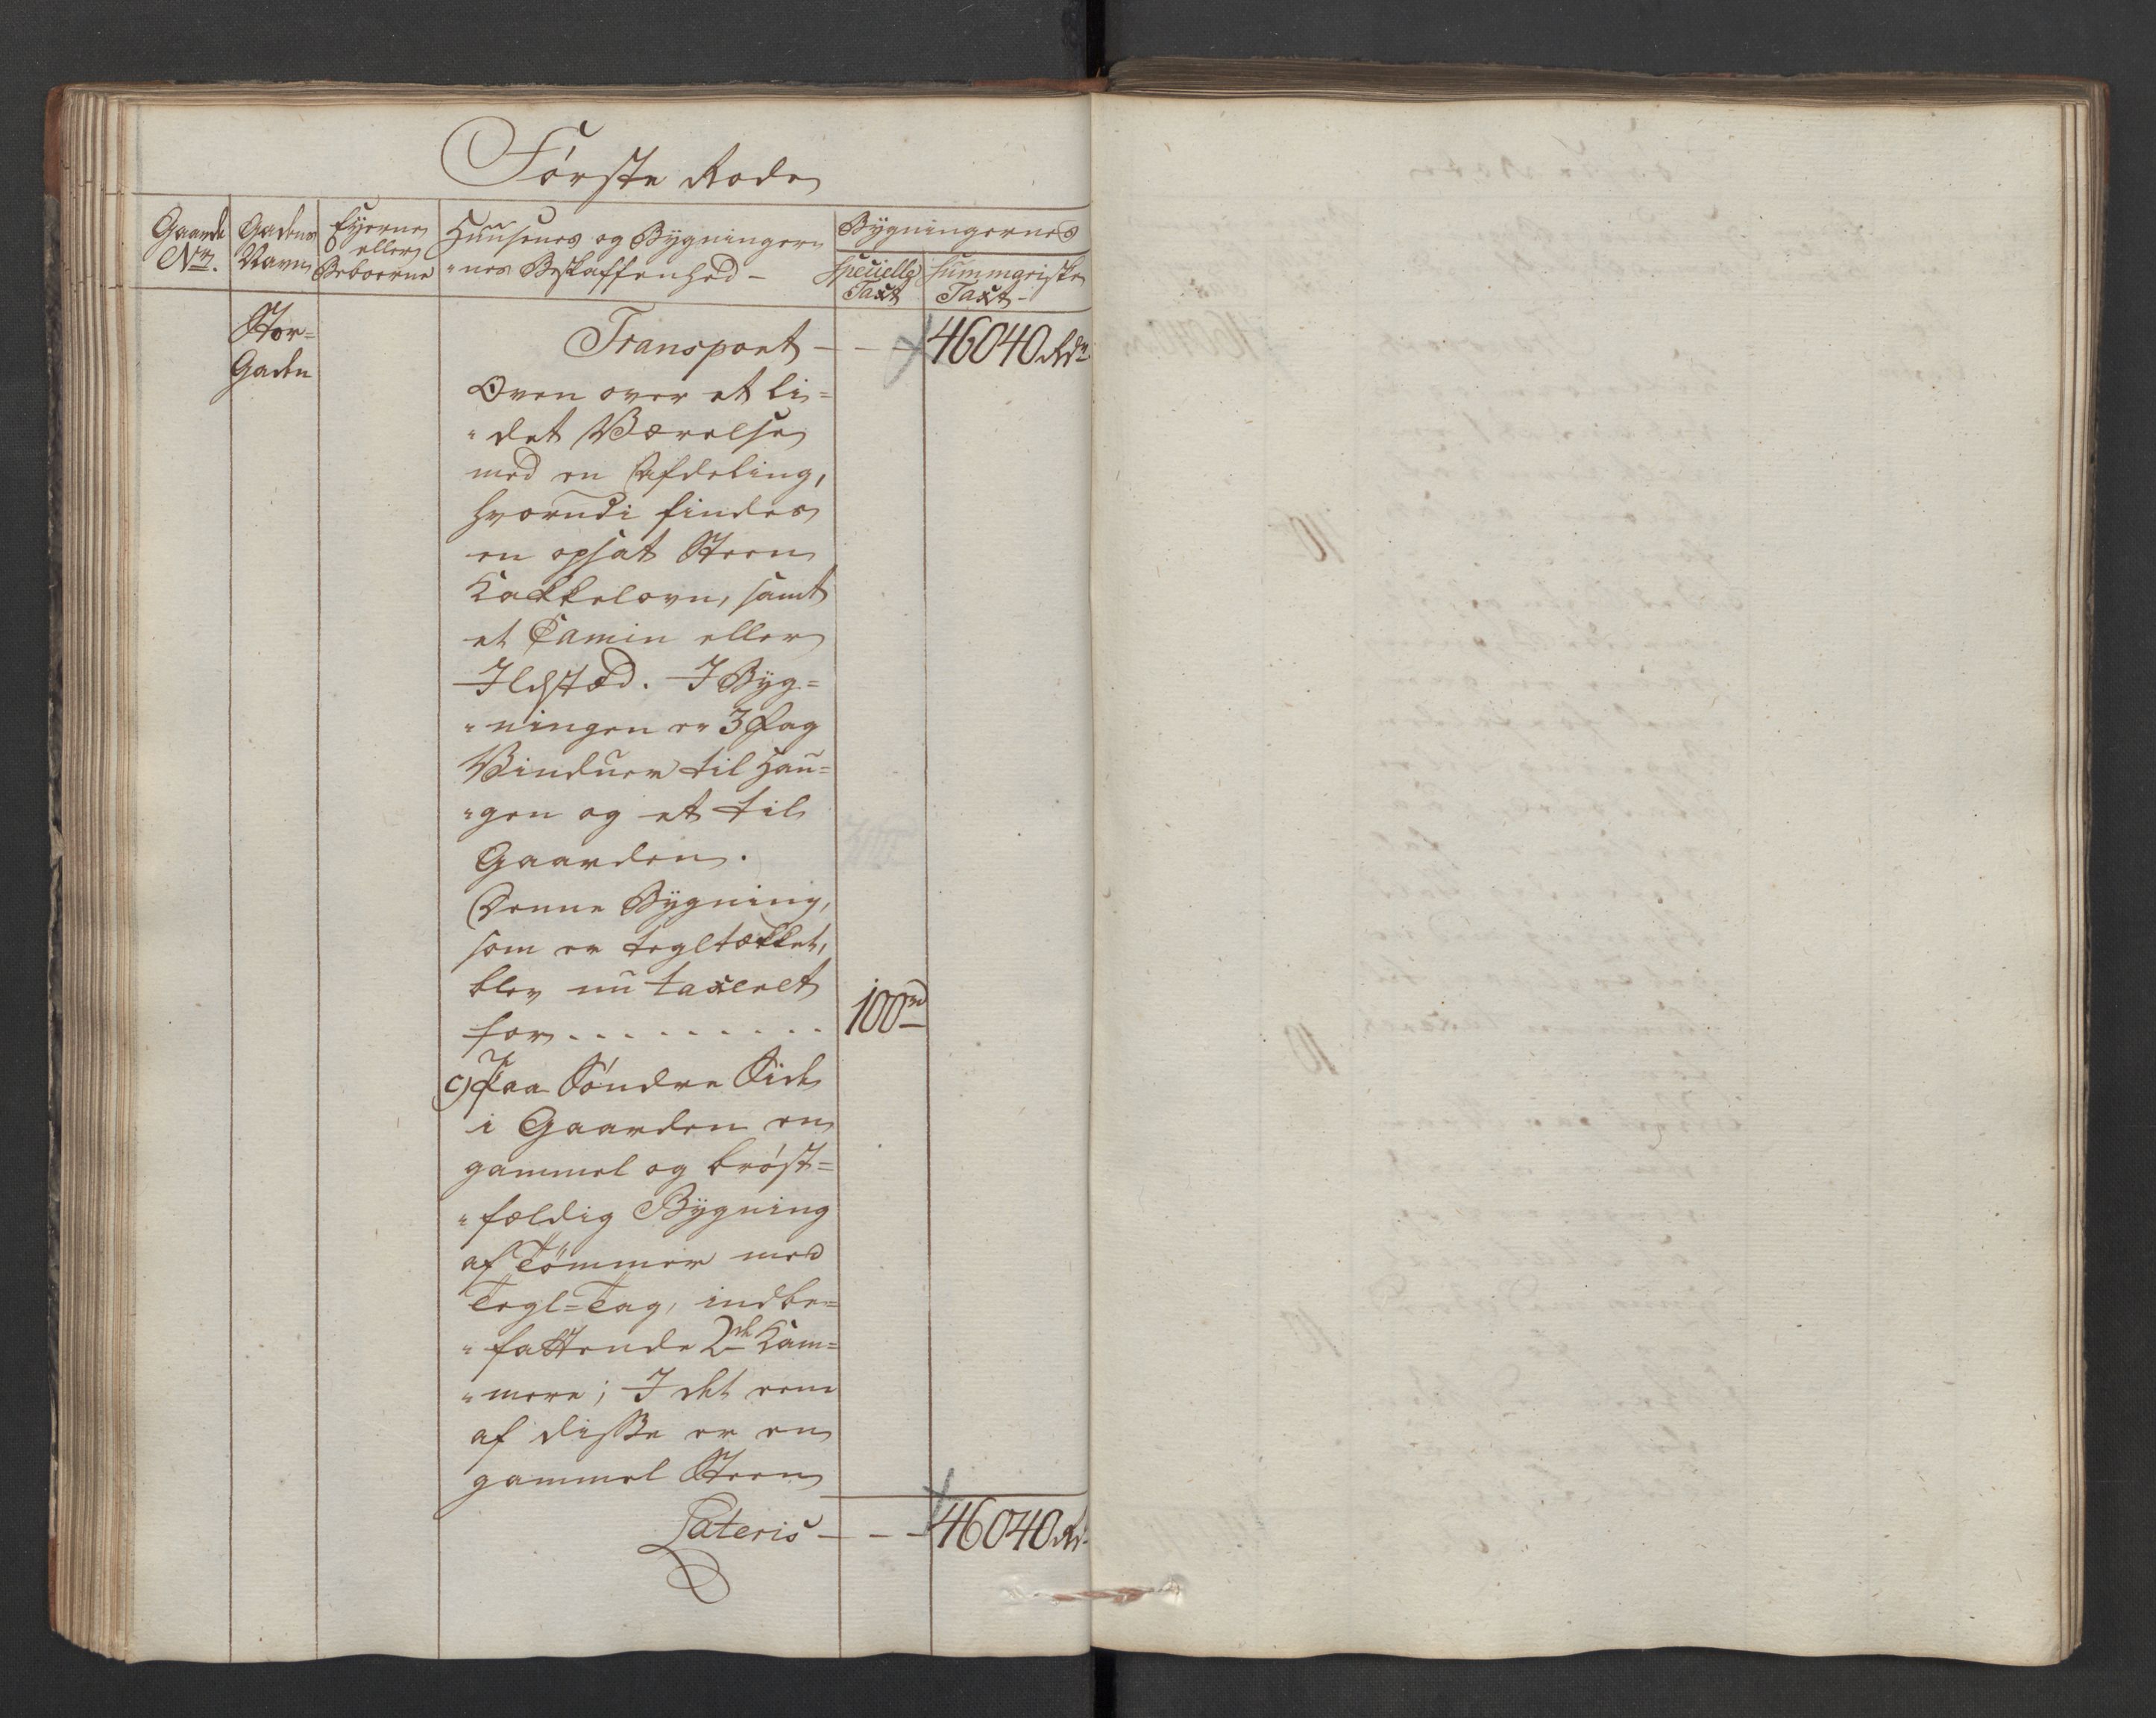 Første Rode
Gaards Nr.
Gadens Navn
Eyerne eller Beboerne
Huusenes og Bygninger-
"nes Beskaffenhed -
Bygningernes
Specielle Taxt
Summariske Taxt -
Stor=
Gaden
Transport - - - 46040 Rdr.
Oven over et li=
"det Værelse
med en Afdeling,
hvorudi findes
en opsat Steen
Kakkelovn, samt
et Camin eller
Ildstæd. I Byg=
"ningen er 3 Fag
Vinduer til Hau=
"gen og et til
Gaarden.
Denne Bygning,
som er tegltækket,
blev nu taxeret
for . . . . . . . . . 100 rd
c) Paa Søndre Side
i Gaarden en
gammel og brøst=
"fældig Bygning
af Tømmer med
Tegl=Tag, indbe=
"fattende 2de Kam=
"mere; I det eene
af disse er en
gammel Steen
Lateris - - - 46040 Rd